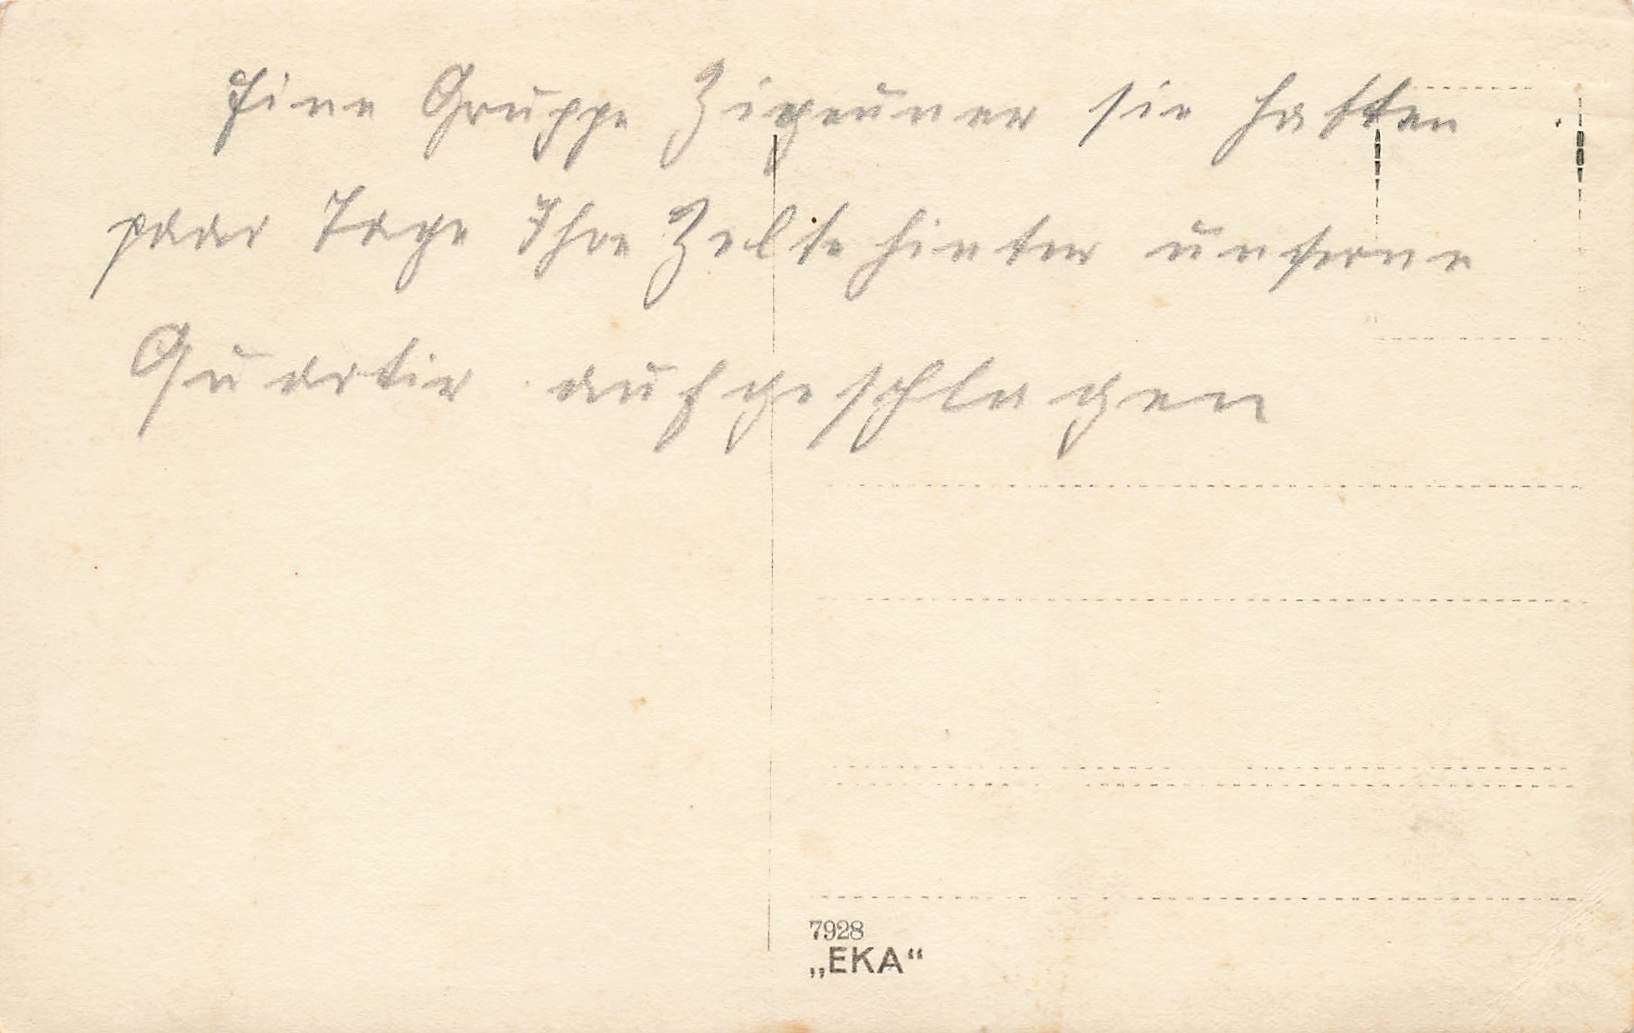 Eine Gruppe Zigeuner sie hatten
paar Tage Ihre Zelte hinter unserne
Quartier aufgeschlagen
7928
„EKA“